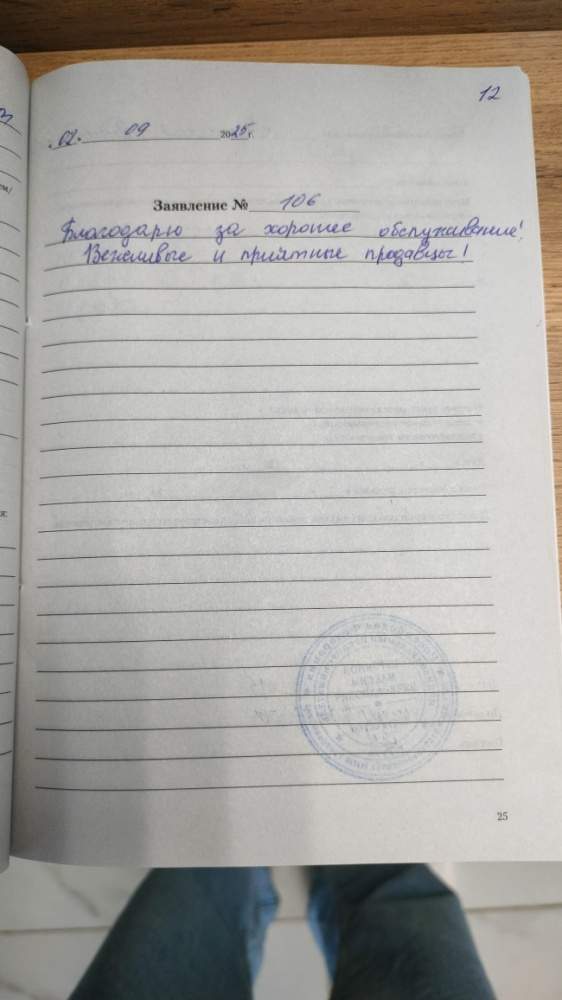 12
02. 09 2025 г.
Заявление № 106
Благодарю за хорошее обслуживание!
Вежливые и приятные продавцы!
25